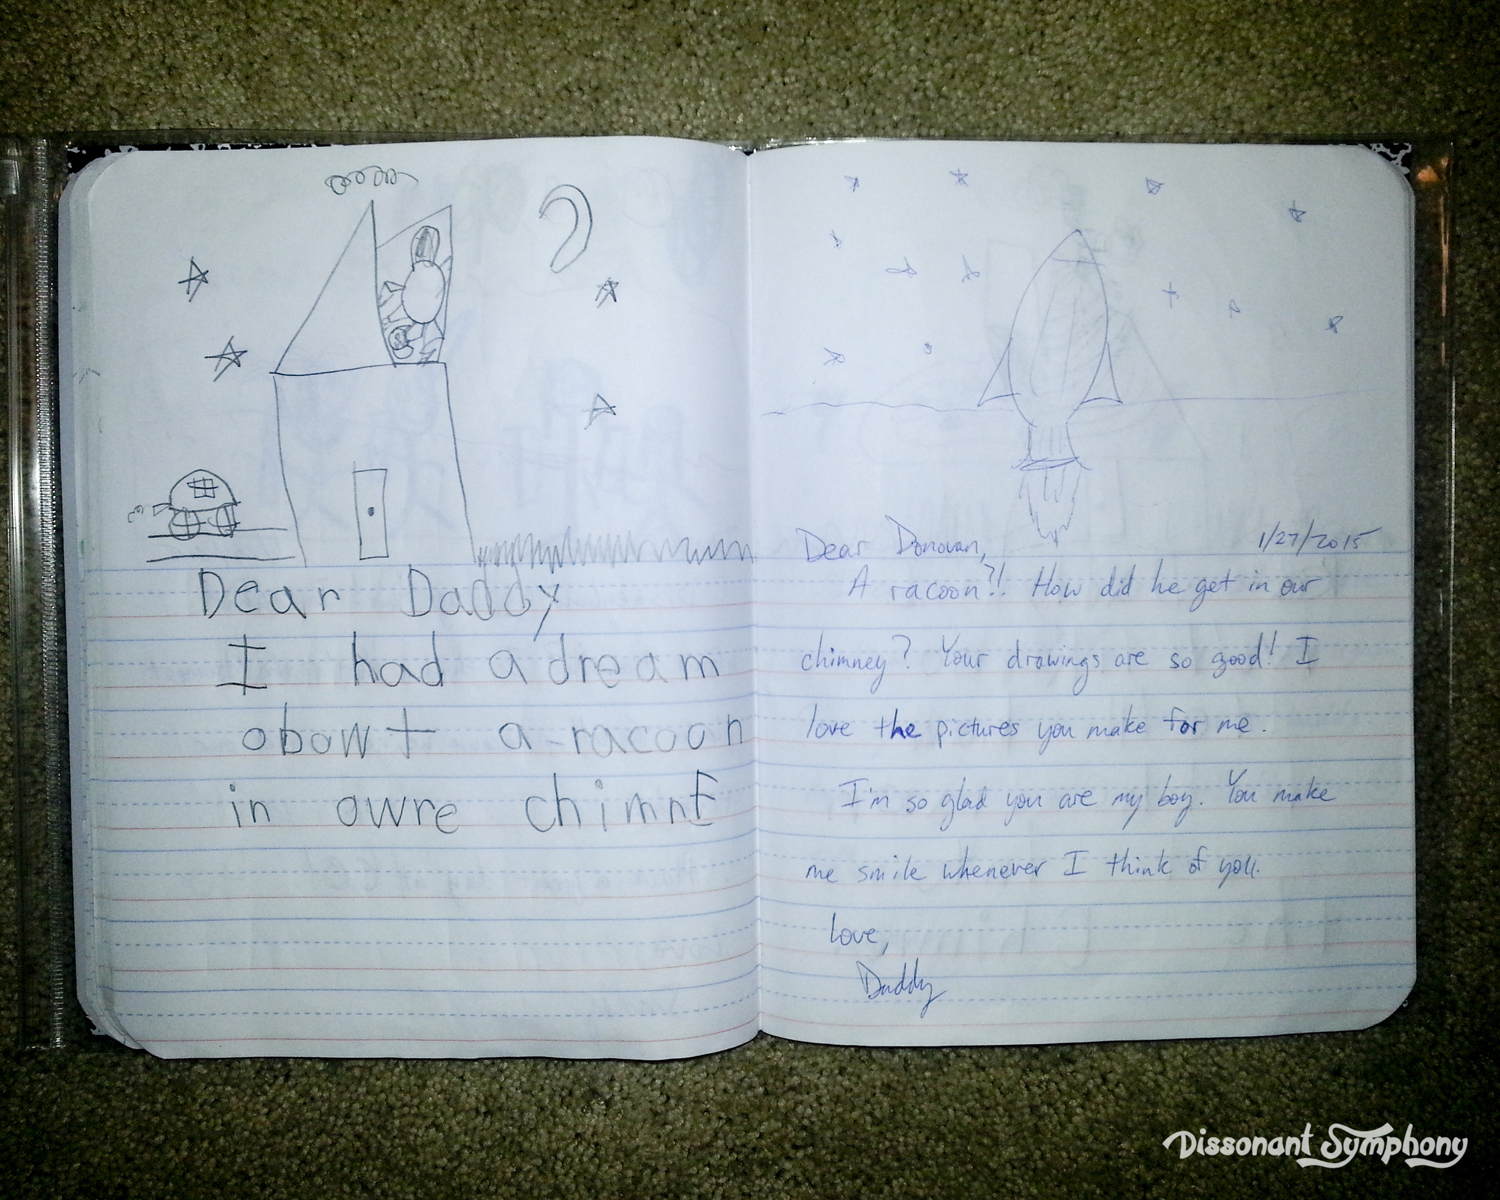 Dear Daddy
I had a dream
obowt a racoon
in owre chimnE
Dear Donovan,
1/27/2015
A racoon?! How did he get in our
chimney? Your drawings are so good! I
love the pictures you make for me.
I'm so glad you are my boy. You make
me smile whenever I think of you.
love,
Daddy
Dissonant Symphony